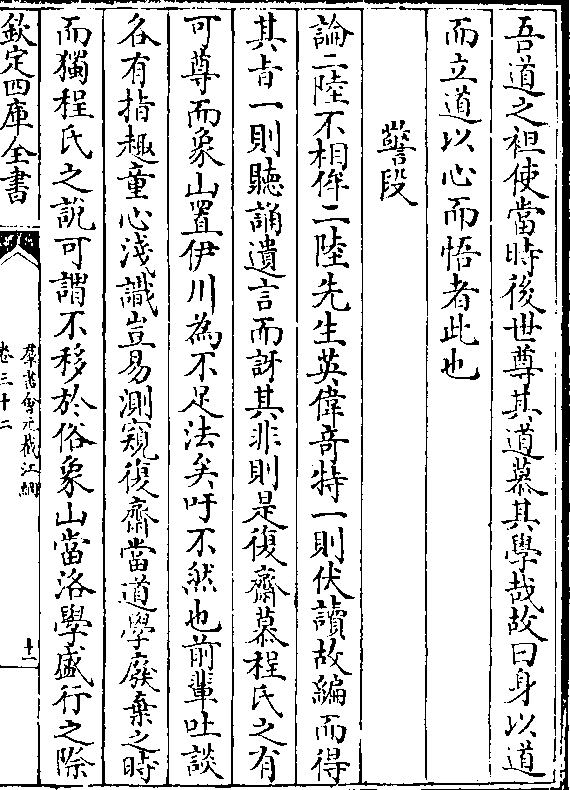 吾道之祖使當時後世尊其道慕其學哉故曰身以道
而立道以心而悟者此也
警段
論二陸不相侔二陸先生英偉奇特一則伏讀故編而得
其旨一則聽誦遺言而訝其非則是復齋慕程氏之有
可尊而象山置伊川為不足法矣吁不然也前輩吐談
各有指趣童心淺識豈易測窺復齋當道學廢棄之時
而獨程氏之說可謂不移於俗象山當洛學盛行之際
欽定四庫全書
羣書會元截江網
卷三十二
十一